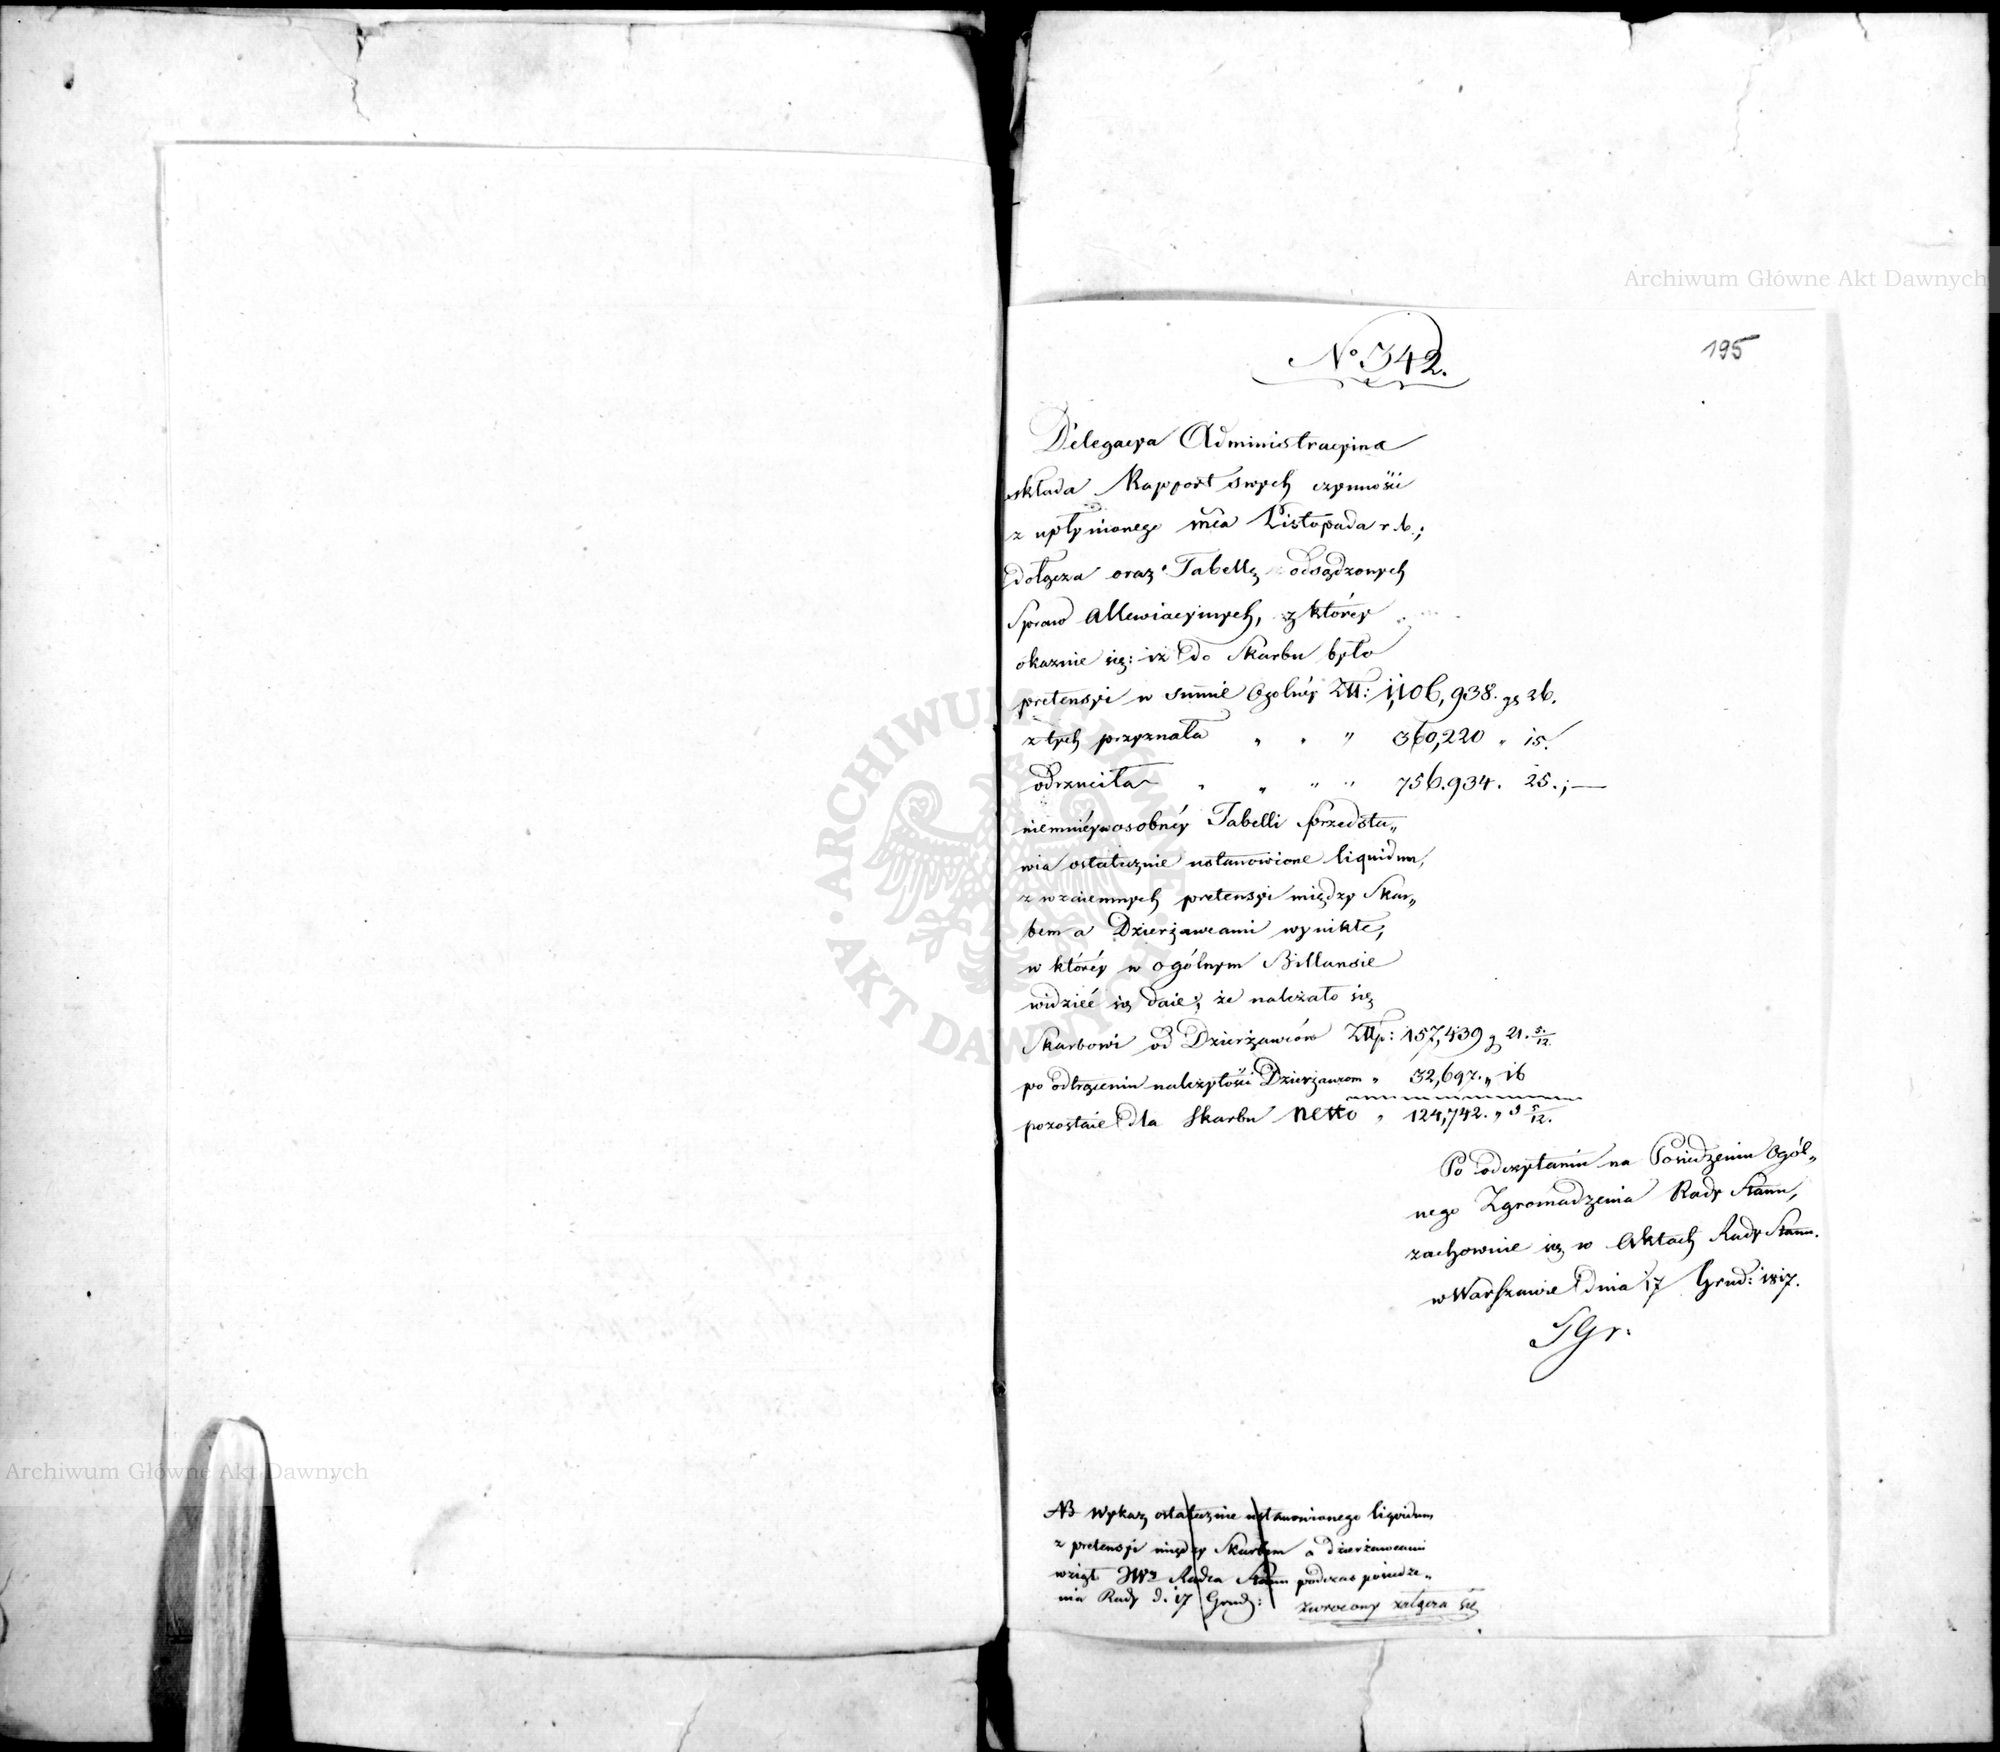 Archiwum Główne Akt Dawnych
195
No 342.
Delegacya Administracyina
składa Rapport swych czynności
z upłynionego mca Listopada r. b.;
dołącza oraz Tabellę odsądzonych
Spraw Allewiacyinych, z którey
okazuie się: iż do Skarbu było
pretensyi w summie Ogólnéy Złł: 1,106,938. gr 26.
z tych przyznała " " " 360,220 " 15.
odrzuciła " " " " 756.934. 25.;—
niemniéy w osobnéy Tabelli przedsta„
wia ostatecznie ustanowione liquidum,
z wzaiemnych pretensyi między Skar„
bem a Dzierżawcami wynikłe,
w któréy w ogólnym Billansie
widzieć się daie; że należało się
Skarbowi od Dzierżawców Złłp: 157,439 g 21. 5/12.
po odtrąceniu należytości Dzierżawcom " 32,697. " 16
pozostaie dla Skarbu netto " 124,742. " 5 5/12.
Po odczytaniu na Posiedzeniu Ogól„
nego Zgromadzenia Rady Stanu,
zachowuie się w Aktach Rady Stanu.
w Warszawie dnia 17 Grud: 1817.
SGr.
NB Wykaz ostatecznie ustanowionego liquidum
z pretensji między Skarbem a dzierżawcami
wziął JWy Radca Stanu podczas posiedze„
nia Rady d. 17 Grud:
zwrócony załącza się
Archiwum Główne Akt Dawnych
ARCHIWUM GŁÓWNE AKT DAWNYCH